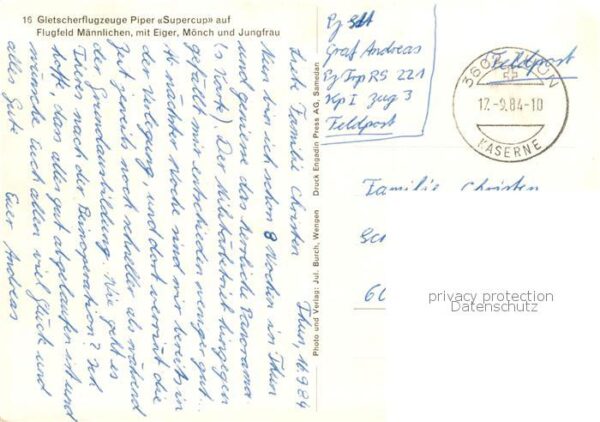 16 Gletscherflugzeuge Piper «Supercup» auf
Flugfeld Männlichen, mit Eiger, Mönch und Jungfrau
Thun, 16.9.84
Liebe Familie Christen
Nun bin ich schon 8 Wochen in Thun
und geniesse das herrliche Panorama
(s. Karte). Der Militärbetrieb hingegen
gefällt mir entschieden weniger gut...
Ab nächster Woche sind wir bereits in
der Verlegung, und dort verrinnt die
Zeit jeweils noch schneller als während
der Grundausbildung. Wie geht es
nach der Beinoperation? Ich
hoffe, dass alles gut abgelaufen ist und
wünsche Euch allen viel Glück und
alles Gute
Euer Andreas
Photo und Verlag: Jul. Burch, Wengen Druck Engadin Press AG, Samedan
Pz Sdt
Graf Andreas
Pz Trp RS 221
Kp I Zug 3
Feldpost
Feldpost
3602 THUN
17.-9.84-10
KASERNE
Familie Christen
60
privacy protection
Datenschutz